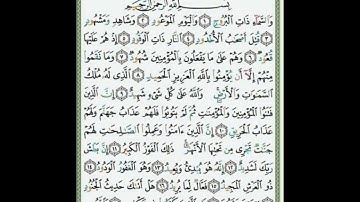 بِسْمِ ٱللَّهِ ٱلرَّحْمَٰنِ ٱلرَّحِيمِ
وَٱلسَّمَآءِ ذَاتِ ٱلْبُرُوجِ ١ وَٱلْيَوْمِ ٱلْمَوْعُودِ ٢ وَشَاهِدٍ وَمَشْهُودٍ
٣ قُتِلَ أَصْحَٰبُ ٱلْأُخْدُودِ ٤ ٱلنَّارِ ذَاتِ ٱلْوَقُودِ ٥ إِذْ هُمْ عَلَيْهَا
قُعُودٌ ٦ وَهُمْ عَلَىٰ مَا يَفْعَلُونَ بِٱلْمُؤْمِنِينَ شُهُودٌ ٧ وَمَا نَقَمُوا۟
مِنْهُمْ إِلَّآ أَن يُؤْمِنُوا۟ بِٱللَّهِ ٱلْعَزِيزِ ٱلْحَمِيدِ ٨ ٱلَّذِى لَهُۥ مُلْكُ
ٱلسَّمَٰوَٰتِ وَٱلْأَرْضِ وَٱللَّهُ عَلَىٰ كُلِّ شَىْءٍ شَهِيدٌ ٩ إِنَّ ٱلَّذِينَ
فَتَنُوا۟ ٱلْمُؤْمِنِينَ وَٱلْمُؤْمِنَٰتِ ثُمَّ لَمْ يَتُوبُوا۟ فَلَهُمْ عَذَابُ جَهَنَّمَ وَلَهُمْ
عَذَابُ ٱلْحَرِيقِ ١٠ إِنَّ ٱلَّذِينَ ءَامَنُوا۟ وَعَمِلُوا۟ ٱلصَّٰلِحَٰتِ لَهُمْ
جَنَّٰتٌ تَجْرِى مِن تَحْتِهَا ٱلْأَنْهَٰرُ ذَٰلِكَ ٱلْفَوْزُ ٱلْكَبِيرُ ١١ إِنَّ بَطْشَ
رَبِّكَ لَشَدِيدٌ ١٢ إِنَّهُۥ هُوَ يُبْدِئُ وَيُعِيدُ ١٣ وَهُوَ ٱلْغَفُورُ ٱلْوَدُودُ ١٤
ذُو ٱلْعَرْشِ ٱلْمَجِيدُ ١٥ فَعَّالٌ لِّمَا يُرِيدُ ١٦ هَلْ أَتَىٰكَ حَدِيثُ ٱلْجُنُودِ